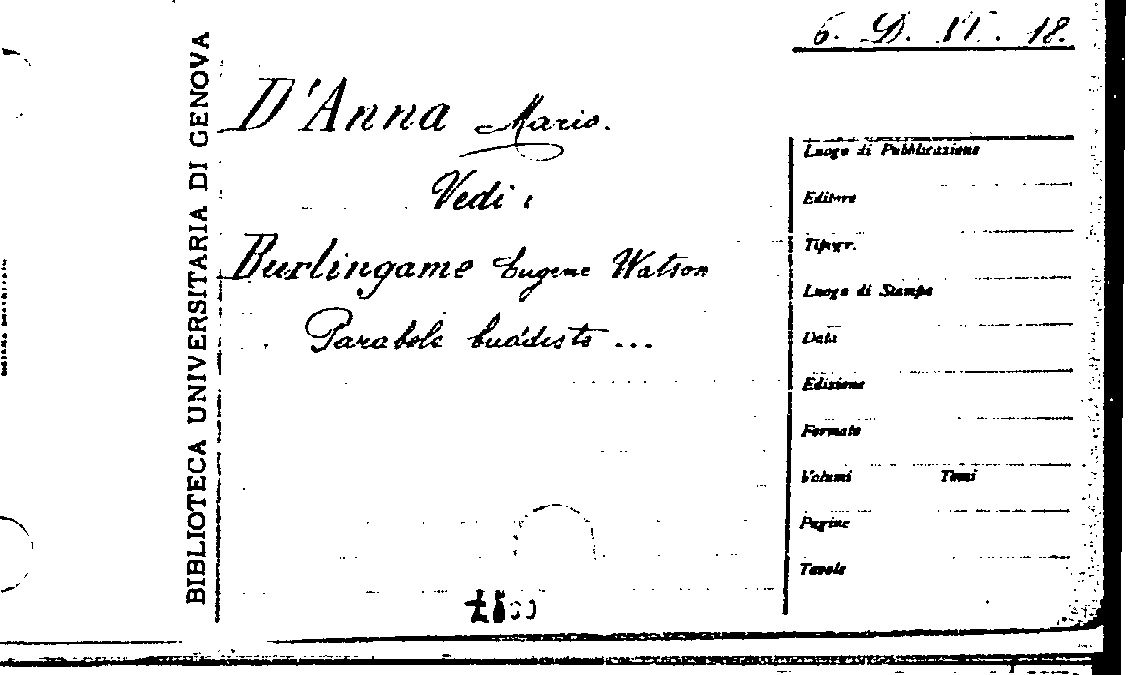 6. D. VI. 18.
BIBLIOTECA UNIVERSITARIA DI GENOVA
D'Anna Mario.
Vedi:
Burlingame Eugene Watson
Parabole buddiste ...
Luogo di Pubblicazione
Editore
Tipogr.
Luogo di Stampa
Data
Edizione
Formato
Volumi Tomi
Pagine
Tavole